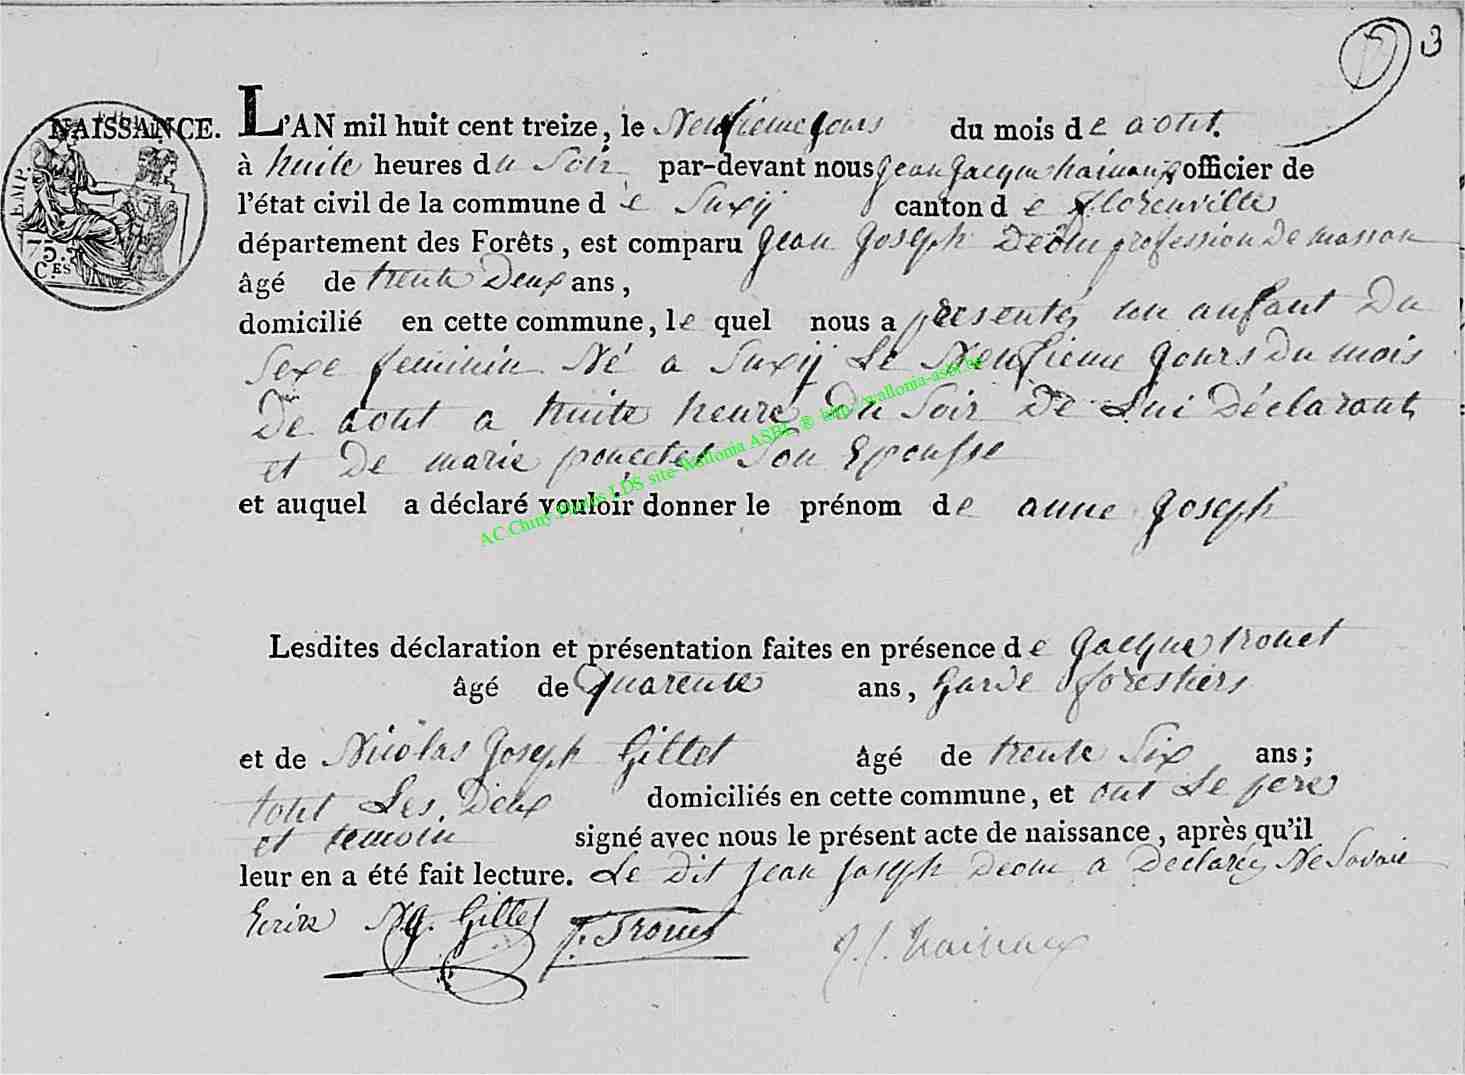 3
NAISSANCE. L'AN mil huit cent treize, le Neufieme jours du mois de aout.
à huite heures du Soir par-devant nous jean jacque hainaux officier de
l'état civil de la commune de Suxÿ canton de florenville
département des Forêts, est comparu jean joseph Deom profession De masson
âgé de trente Deux ans,
domicilié en cette commune, le quel nous a presenté, un anfant Du
Sexe feminin Né a Suxÿ Le Neufieme jours Du mois
De aout a huite heure Du Soir De Lui Déclarant
et De marie poncelet Son Epousse
et auquel a déclaré vouloir donner le prénom de anne joseph
AC Chiny Photos LDS site Wallonia ASBL ® http://wallonia-asbl.be
Lesdites déclaration et présentation faites en présence de jacque trouet
âgé de quarente ans, garde forestiers
et de Nicolas joseph Gillet âgé de trente Six ans;
tout Les Deux domiciliés en cette commune, et ont Le pere
et temoin signé avec nous le présent acte de naissance, après qu'il
leur en a été fait lecture. Le Dit jean joseph Deom a Declaréz Ne Savoir
Ecrire N j. Gillet J. Trouet J. J. hainaux
EMP.
75 C.ES